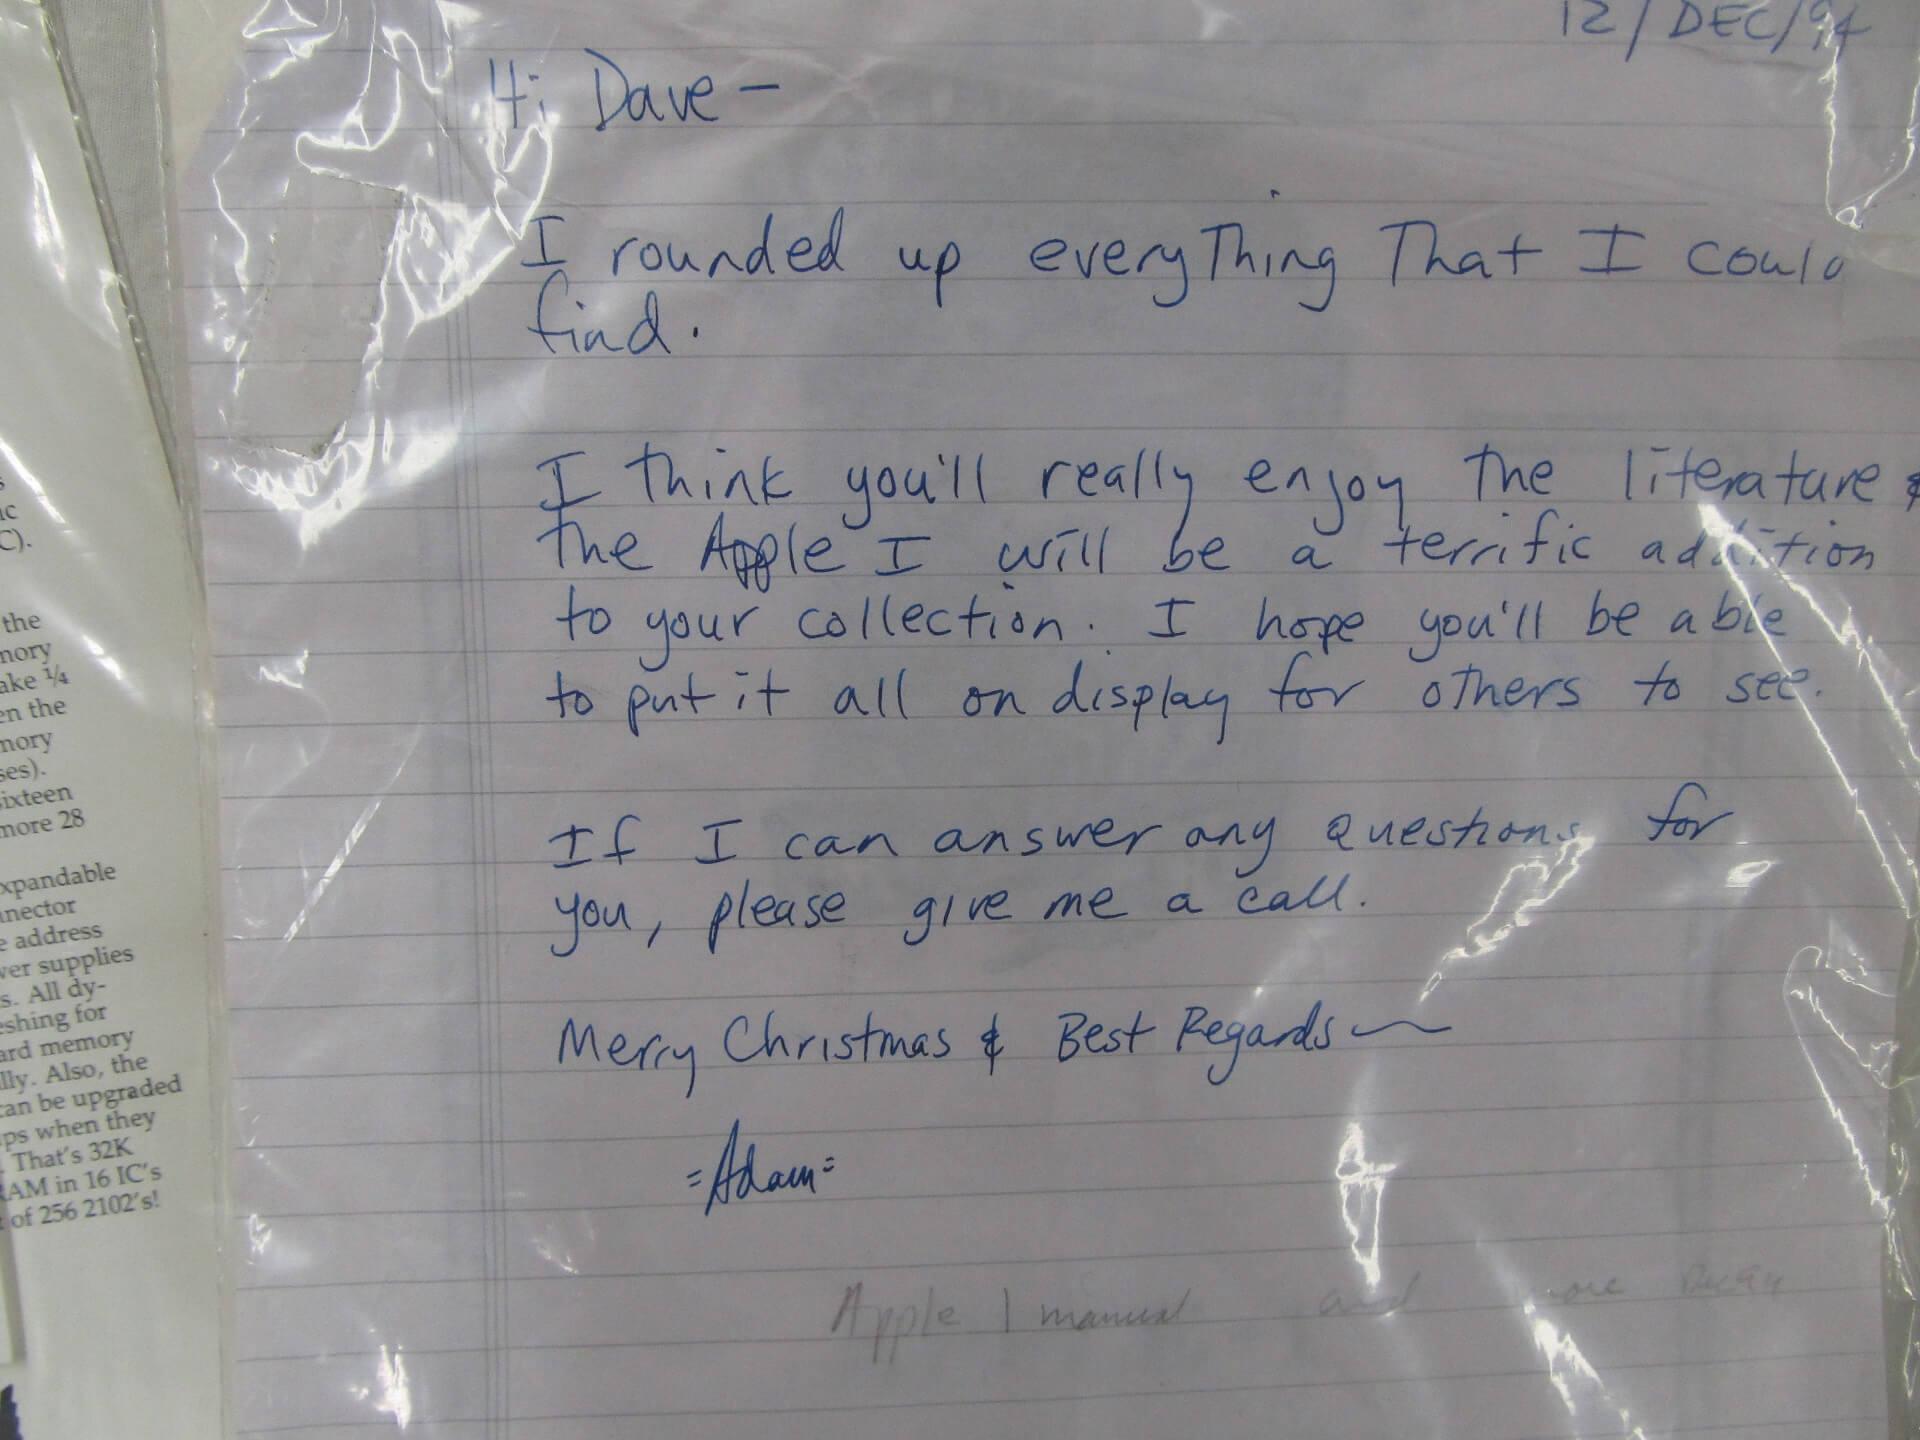 12/DEC/94
Hi Dave –
I rounded up everything that I could
find.
I think you'll really enjoy the literature &
the Apple I will be a terrific addition
to your collection. I hope you'll be able
to put it all on display for others to see.
If I can answer any questions for
you, please give me a call.
Merry Christmas & Best Regards
=Adam=
Apple 1 manual and
C).
the
ake ¼
en the
sixteen
more 28
xpandable
address
supplies
s. All dy-
for
memory
lly. Also, the
can be upgraded
ps when they
. That's 32K
RAM in 16 IC's
of 256 2102's!